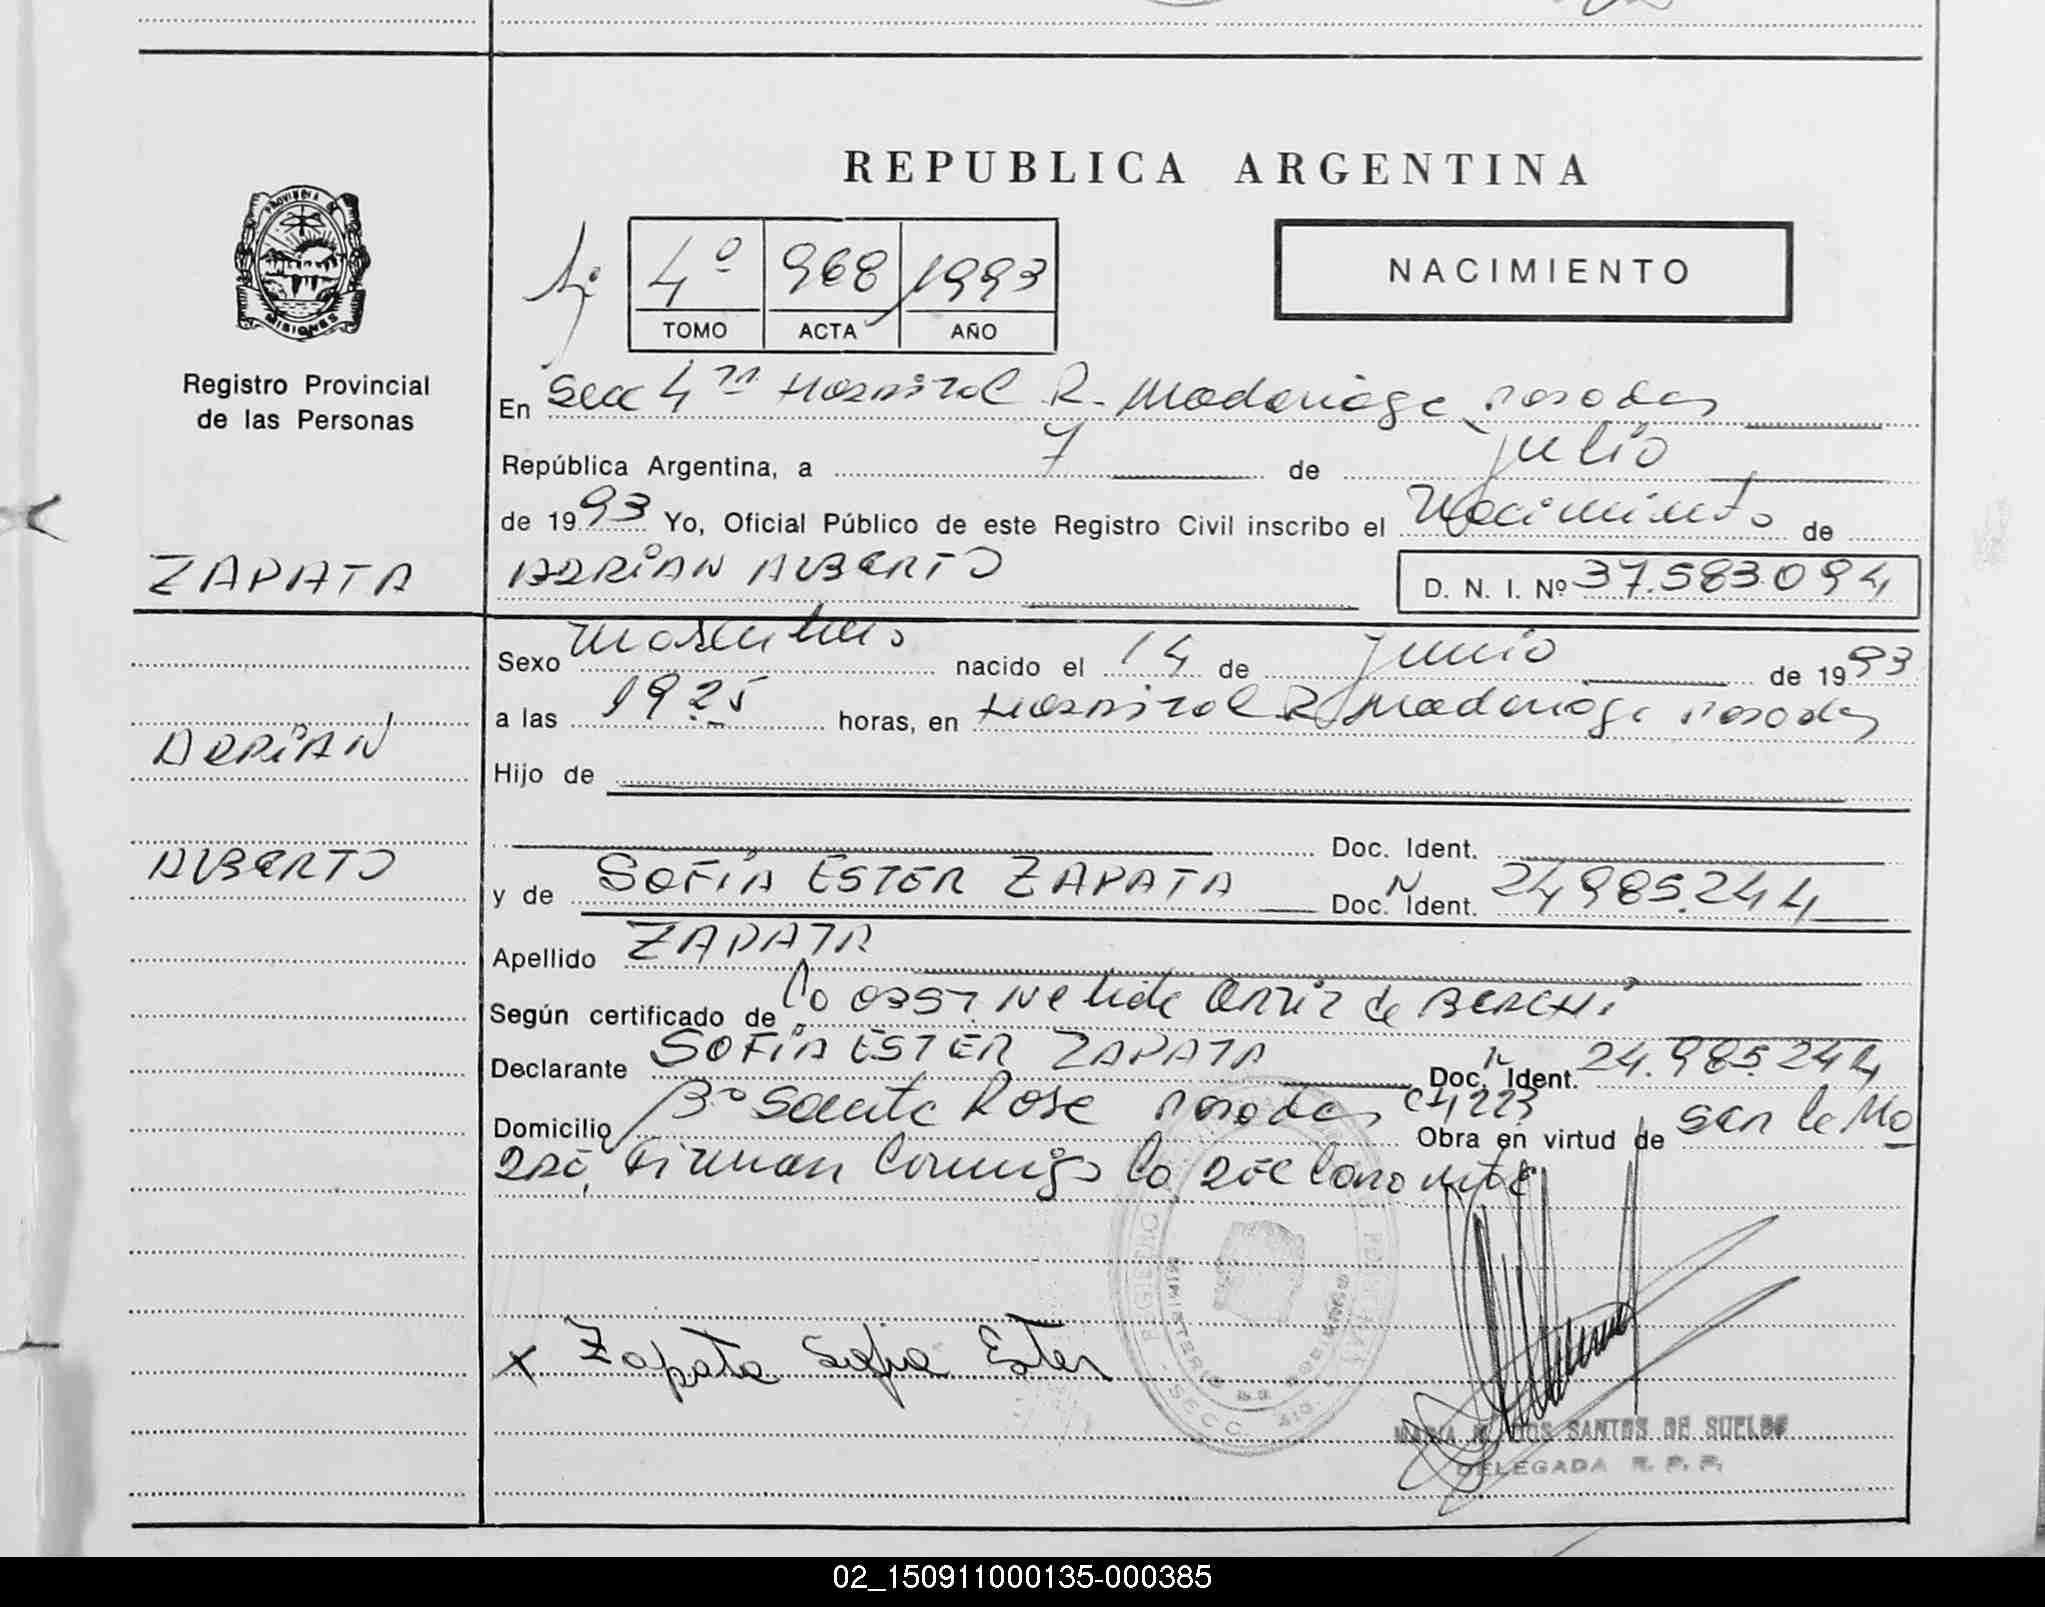 REPUBLICA ARGENTINA
PROVINCIA DE
MISIONES
Registro Provincial
de las Personas
4º 968 1993
TOMO ACTA AÑO
NACIMIENTO
En Secc 4ta Hospital R. Madariaga Posadas
República Argentina, a 7 de julio
de 1993 Yo, Oficial Público de este Registro Civil inscribo el Nacimiento de
ZAPATA
ADRIAN ALBERTO D. N. I. Nº 37.583.094
Sexo Masculino nacido el 14 de Junio de 1993
a las 19 25 horas, en Hospital R. Madariaga Posadas
ADRIAN
Hijo de
Doc. Ident.
ALBERTO
y de SOFIA ESTER ZAPATA Doc. N Ident. 24985.244
Apellido ZAPATA
Según certificado de la obst Nelida Ortiz de BERCHI
Declarante SOFIA ESTER ZAPATA Doc. N Ident. 24.985244
Domicilio Bº Santa Rosa Posadas Obra en virtud de ser la Ma
dre, Firman Conmigo la declarante
x Zapata Sofia Ester
MINISTERIO DE GOBIERNO
SECC.
MARIA DOS SANTOS DE SUELDE
DELEGADA R. P. P.
02_150911000135-000385